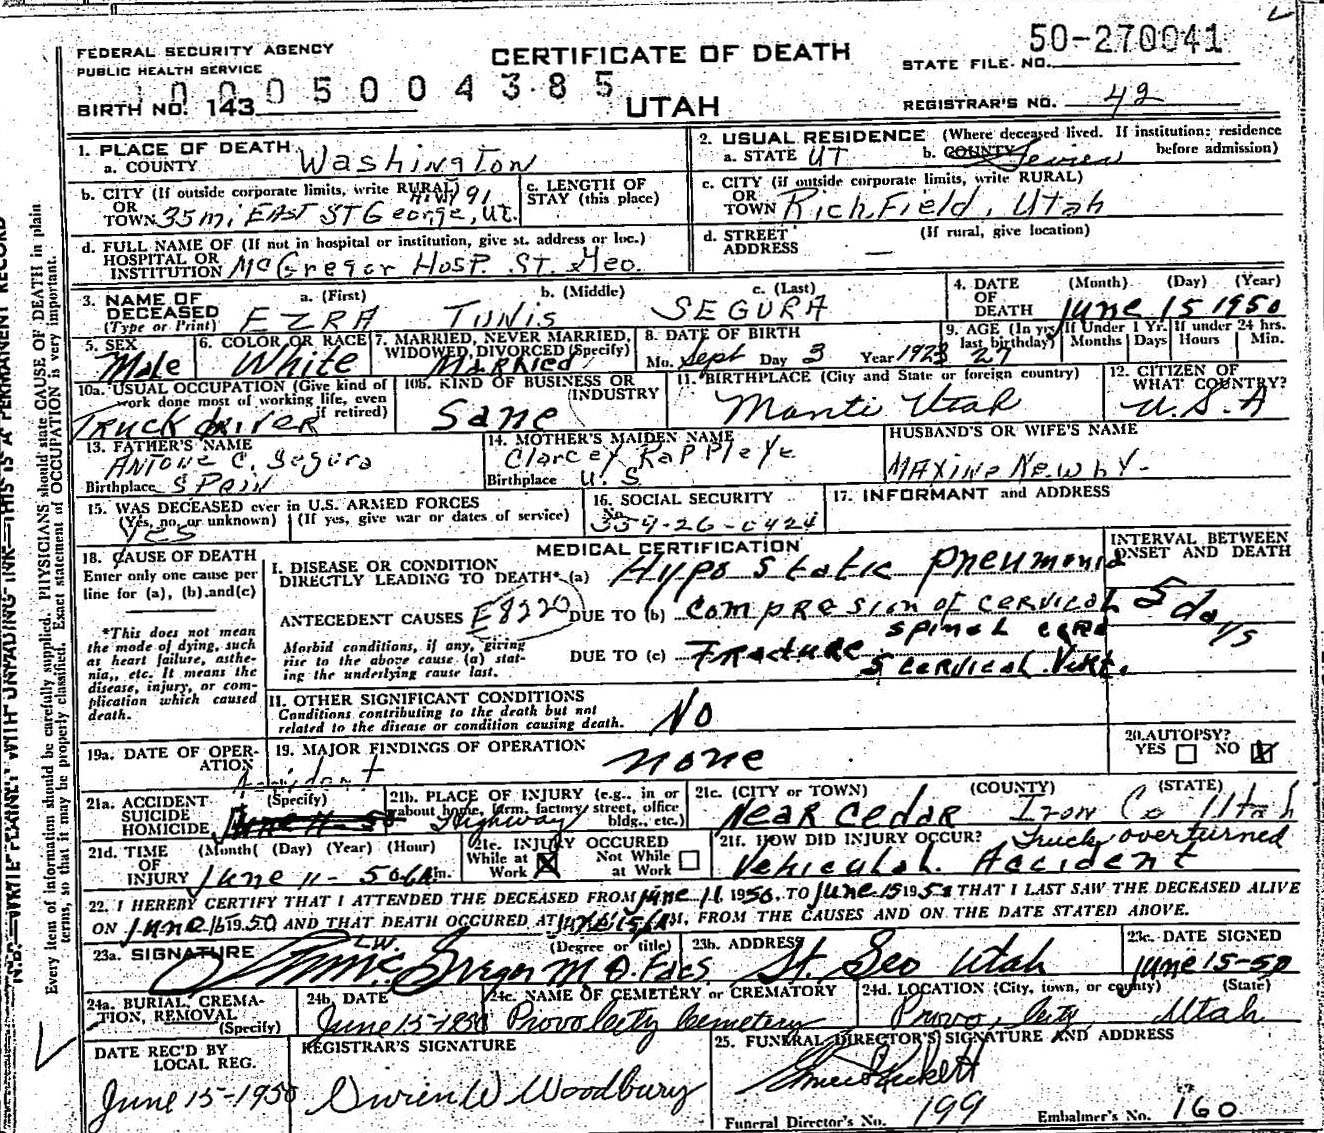 FEDERAL SECURITY AGENCY
PUBLIC HEALTH SERVICE
CERTIFICATE OF DEATH
UTAH
STATE FILE NO. 50-270041
REGISTRAR'S NO. 42
BIRTH NO. 143
0005004385
1. PLACE OF DEATH
a. COUNTY Washington
b. CITY (If outside corporate limits, write RURAL) OR TOWN 35 m, EAST ST George, Ut. Hiwy 91
c. LENGTH OF STAY (this place)
d. FULL NAME OF (If not in hospital or institution, give st. address or loc.) HOSPITAL OR INSTITUTION McGregor Hosp. St. Geo.
2. USUAL RESIDENCE (Where deceased lived. If institution: residence before admission)
a. STATE UT b. COUNTY Sevier
c. CITY (if outside corporate limits, write RURAL) OR TOWN Richfield, Utah
d. STREET ADDRESS (If rural, give location) —
3. NAME OF DECEASED (Type or Print) a. (First) EZRA b. (Middle) TUNIS c. (Last) SEGURA
4. DATE OF DEATH (Month) (Day) (Year) June 15 1950
5. SEX Male
6. COLOR OR RACE White
7. MARRIED, NEVER MARRIED, WIDOWED, DIVORCED (Specify) Married
8. DATE OF BIRTH Mo. Sept Day 3 Year 1923
9. AGE (In yrs. last birthday) 27 If Under 1 Yr. Months Days If under 24 hrs. Hours Min.
10a. USUAL OCCUPATION (Give kind of work done most of working life, even if retired) Truck driver
10b. KIND OF BUSINESS OR INDUSTRY Sane
11. BIRTHPLACE (City and State or foreign country) Manti Utah
12. CITIZEN OF WHAT COUNTRY? U.S.A
13. FATHER'S NAME Antone C. Segura
Birthplace SPain
14. MOTHER'S MAIDEN NAME Clarcey Rappleye
Birthplace U.S
HUSBAND'S OR WIFE'S NAME
Maxine Newby-
15. WAS DECEASED ever in U.S. ARMED FORCES
(Yes, no, or unknown) (If yes, give war or dates of service)
Yes
16. SOCIAL SECURITY No.
559-26-0424
17. INFORMANT and ADDRESS
MEDICAL CERTIFICATION
INTERVAL BETWEEN ONSET AND DEATH
5 days
18. CAUSE OF DEATH
Enter only one cause per line for (a), (b) and (c)
*This does not mean the mode of dying, such as heart failure, asthenia, etc. It means the disease, injury, or complication which caused death.
I. DISEASE OR CONDITION DIRECTLY LEADING TO DEATH* (a) Hypo Static Pneumonia
ANTECEDENT CAUSES E8220 DUE TO (b) Compresion of cervical spinal cord
Morbid conditions, if any, giving rise to the above cause (a) stating the underlying cause last.
DUE TO (c) Fracture 5 cervical Vert.
II. OTHER SIGNIFICANT CONDITIONS
Conditions contributing to the death but not related to the disease or condition causing death.
No
19a. DATE OF OPERATION
19. MAJOR FINDINGS OF OPERATION
none
20. AUTOPSY?
YES NO X
21a. ACCIDENT SUICIDE HOMICIDE (Specify) Accident
June 11-50
21b. PLACE OF INJURY (e.g., in or about home, farm, factory, street, office bldg., etc.) Highway
21c. (CITY or TOWN) (COUNTY) (STATE)
Near Cedar Iron Co Utah
21d. TIME OF INJURY (Month) (Day) (Year) (Hour)
June 11-50 6 A m.
21e. INJURY OCCURED
While at Work X Not While at Work
21f. HOW DID INJURY OCCUR? Truck overturned
Vehicular Accident
22. I HEREBY CERTIFY THAT I ATTENDED THE DECEASED FROM June 11 1950, TO June 15 1950 THAT I LAST SAW THE DECEASED ALIVE
ON June 15 1950 AND THAT DEATH OCCURED AT June 15 6 A M, FROM THE CAUSES AND ON THE DATE STATED ABOVE.
23a. SIGNATURE (Degree or title) L.W. McGregor M.D. FACS
23b. ADDRESS St. Geo Utah
23c. DATE SIGNED June 15-50
24a. BURIAL, CREMATION, REMOVAL (Specify)
24b. DATE June 15-1950
24c. NAME OF CEMETERY or CREMATORY Provo City Cemetery
24d. LOCATION (City, town, or county) (State) Provo, City Utah
DATE REC'D BY LOCAL REG.
June 15-1950
REGISTRAR'S SIGNATURE
W Woodbury
25. FUNERAL DIRECTOR'S SIGNATURE AND ADDRESS
Funeral Director's No. 199 Embalmer's No. 160
N.B.—WRITE PLAINLY WITH UNFADING INK—THIS IS A PERMANENT RECORD
Every item of information should be carefully supplied. PHYSICIANS should state CAUSE OF DEATH in plain
terms, so that it may be properly classified. Exact statement of OCCUPATION is very important.